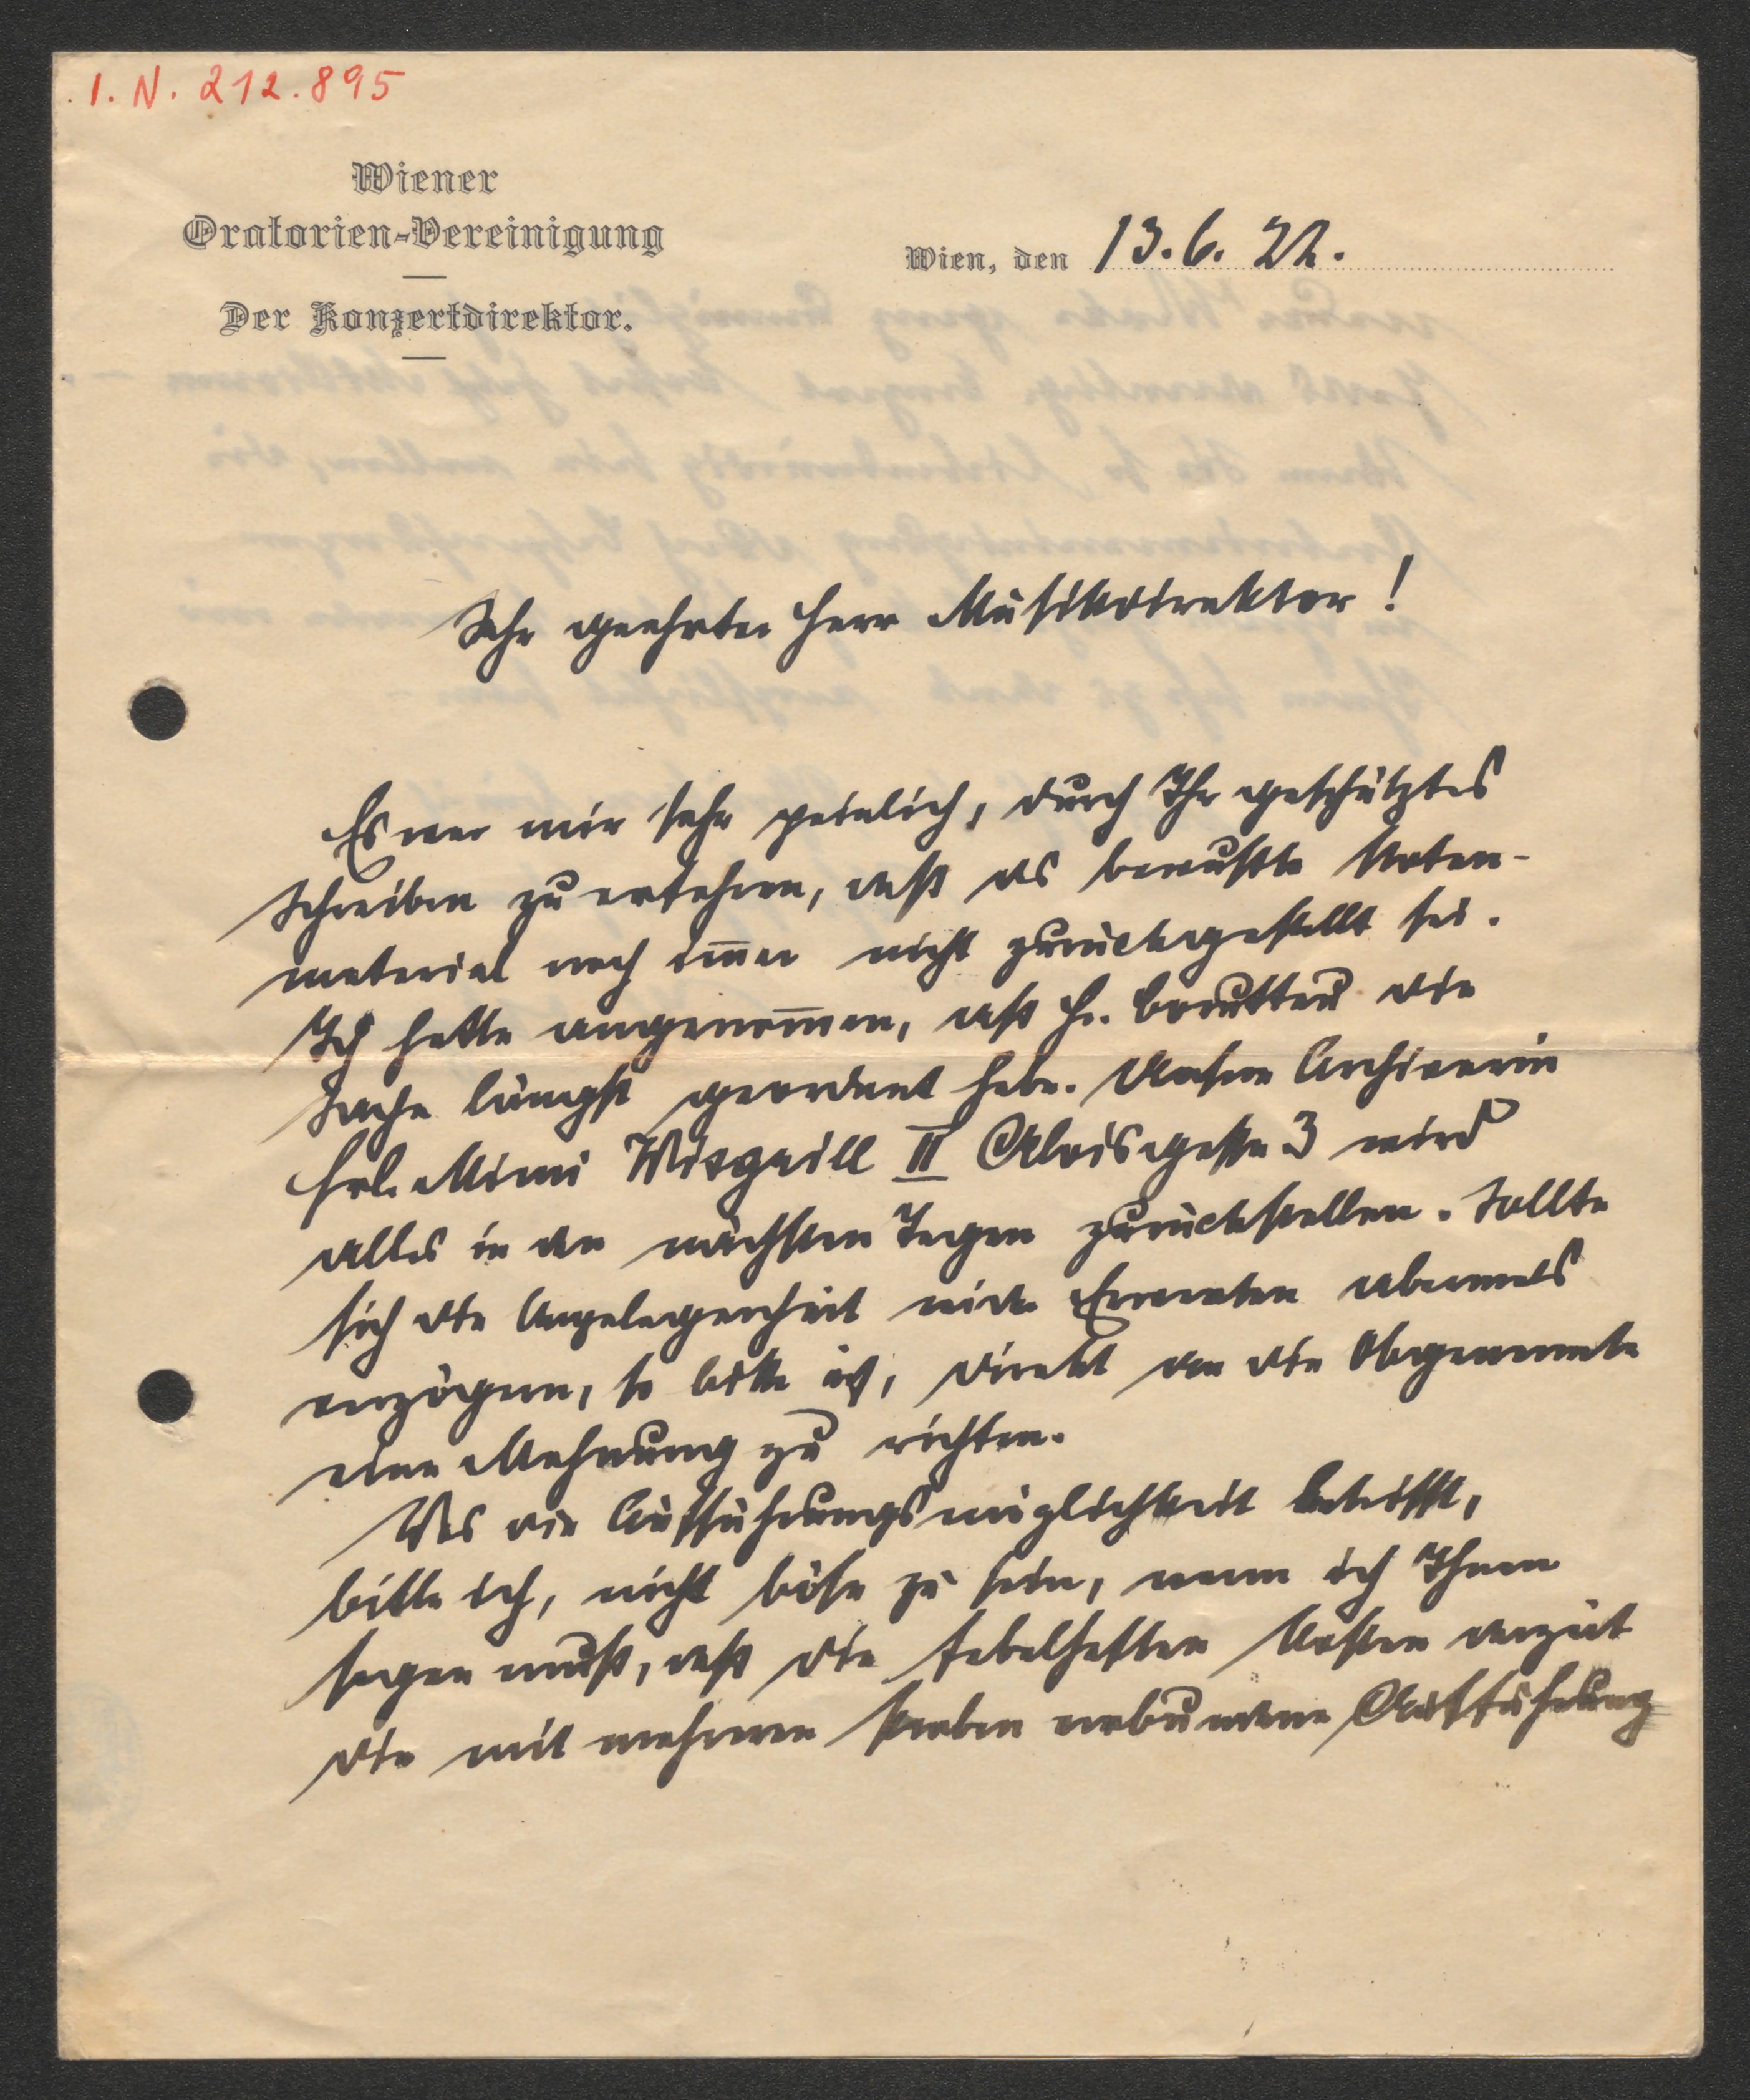 I. N. 212.895
Wiener
Oratorien-Vereinigung
Der Konzertdirektor.
Wien, den 13.6.22.
Sehr geehrter Herr Musikdirektor!
Es war mir sehr peinlich, durch Ihr geschätztes
Schreiben zu erfahren, daß das bewußte Noten-
material noch im̅er nicht zurückgestellt sei.
Ich hatte angenom̅en, daß H. Boruttau die
Sache längst geordnet habe. Unsere Archivarin
Frl. Mimi Wisgrill II Aloisgasse 3 wird
alles in den nächsten Tagen zurückstellen. Sollte
sich die Angelegenheit wider Erwarten abermals
verzögern, so bitte ich, direkt an die Obgenannte
eine Mahnung zu richten.
Was die Aufführungsmöglichkeit betrifft,
bitte ich, nicht böse zu sein, wenn ich Ihnen
sagen muß, daß die fabelhaften Kosten derzeit
die mit mehreren Proben verbundene Aufführung